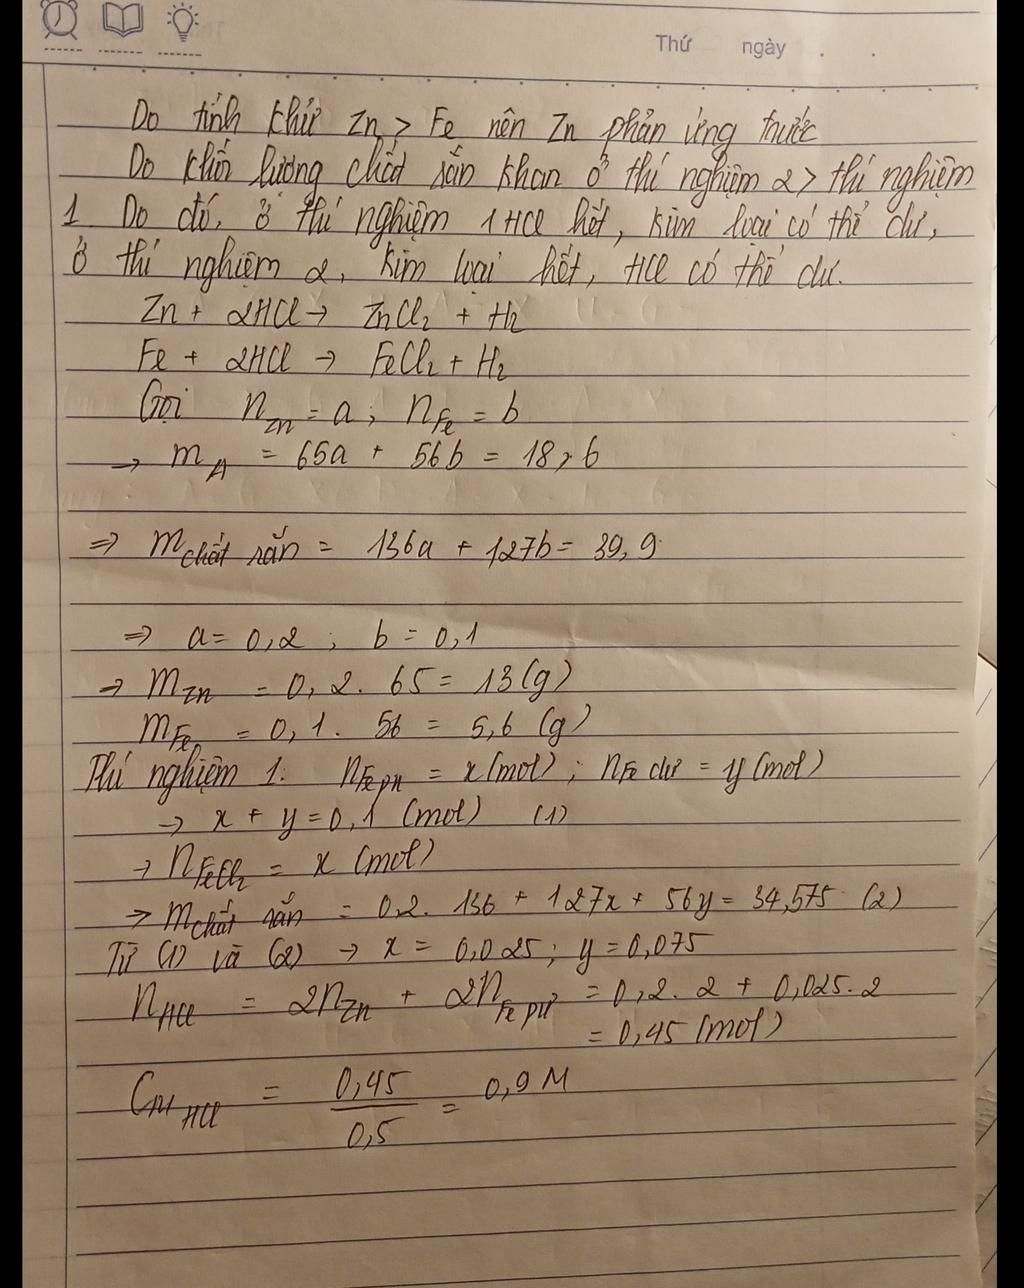 Thứ ngày . .
Do tính khử Zn > Fe nên Zn phản ứng trước
Do khối lượng chất rắn khan ở thí nghiệm 2 > thí nghiệm
1. Do đó, ở thí nghiệm 1 HCl hết, kim loại có thể dư,
ở thí nghiệm 2, kim loại hết, HCl có thể dư.
Zn + 2HCl → ZnCl₂ + H₂
Fe + 2HCl → FeCl₂ + H₂
Gọi n_Zn = a ; n_Fe = b
→ m_A = 65a + 56b = 18,6
⇒ m_chất rắn = 136a + 127b = 39,9
⇒ a = 0,2 ; b = 0,1
→ m_Zn = 0,2 . 65 = 13 (g)
m_Fe = 0,1 . 56 = 5,6 (g)
Thí nghiệm 1: n_Fe pư = x (mol) ; n_Fe dư = y (mol)
→ x + y = 0,1 (mol) (1)
→ n_FeCl₂ = x (mol)
→ m_chất rắn = 0,2 . 136 + 127x + 56y = 34,575 (2)
Từ (1) và (2) → x = 0,025 ; y = 0,075
n_HCl = 2n_Zn + 2n_Fe pư = 0,2 . 2 + 0,025 . 2
= 0,45 (mol)
C_M HCl = 0,45 / 0,5 = 0,9 M